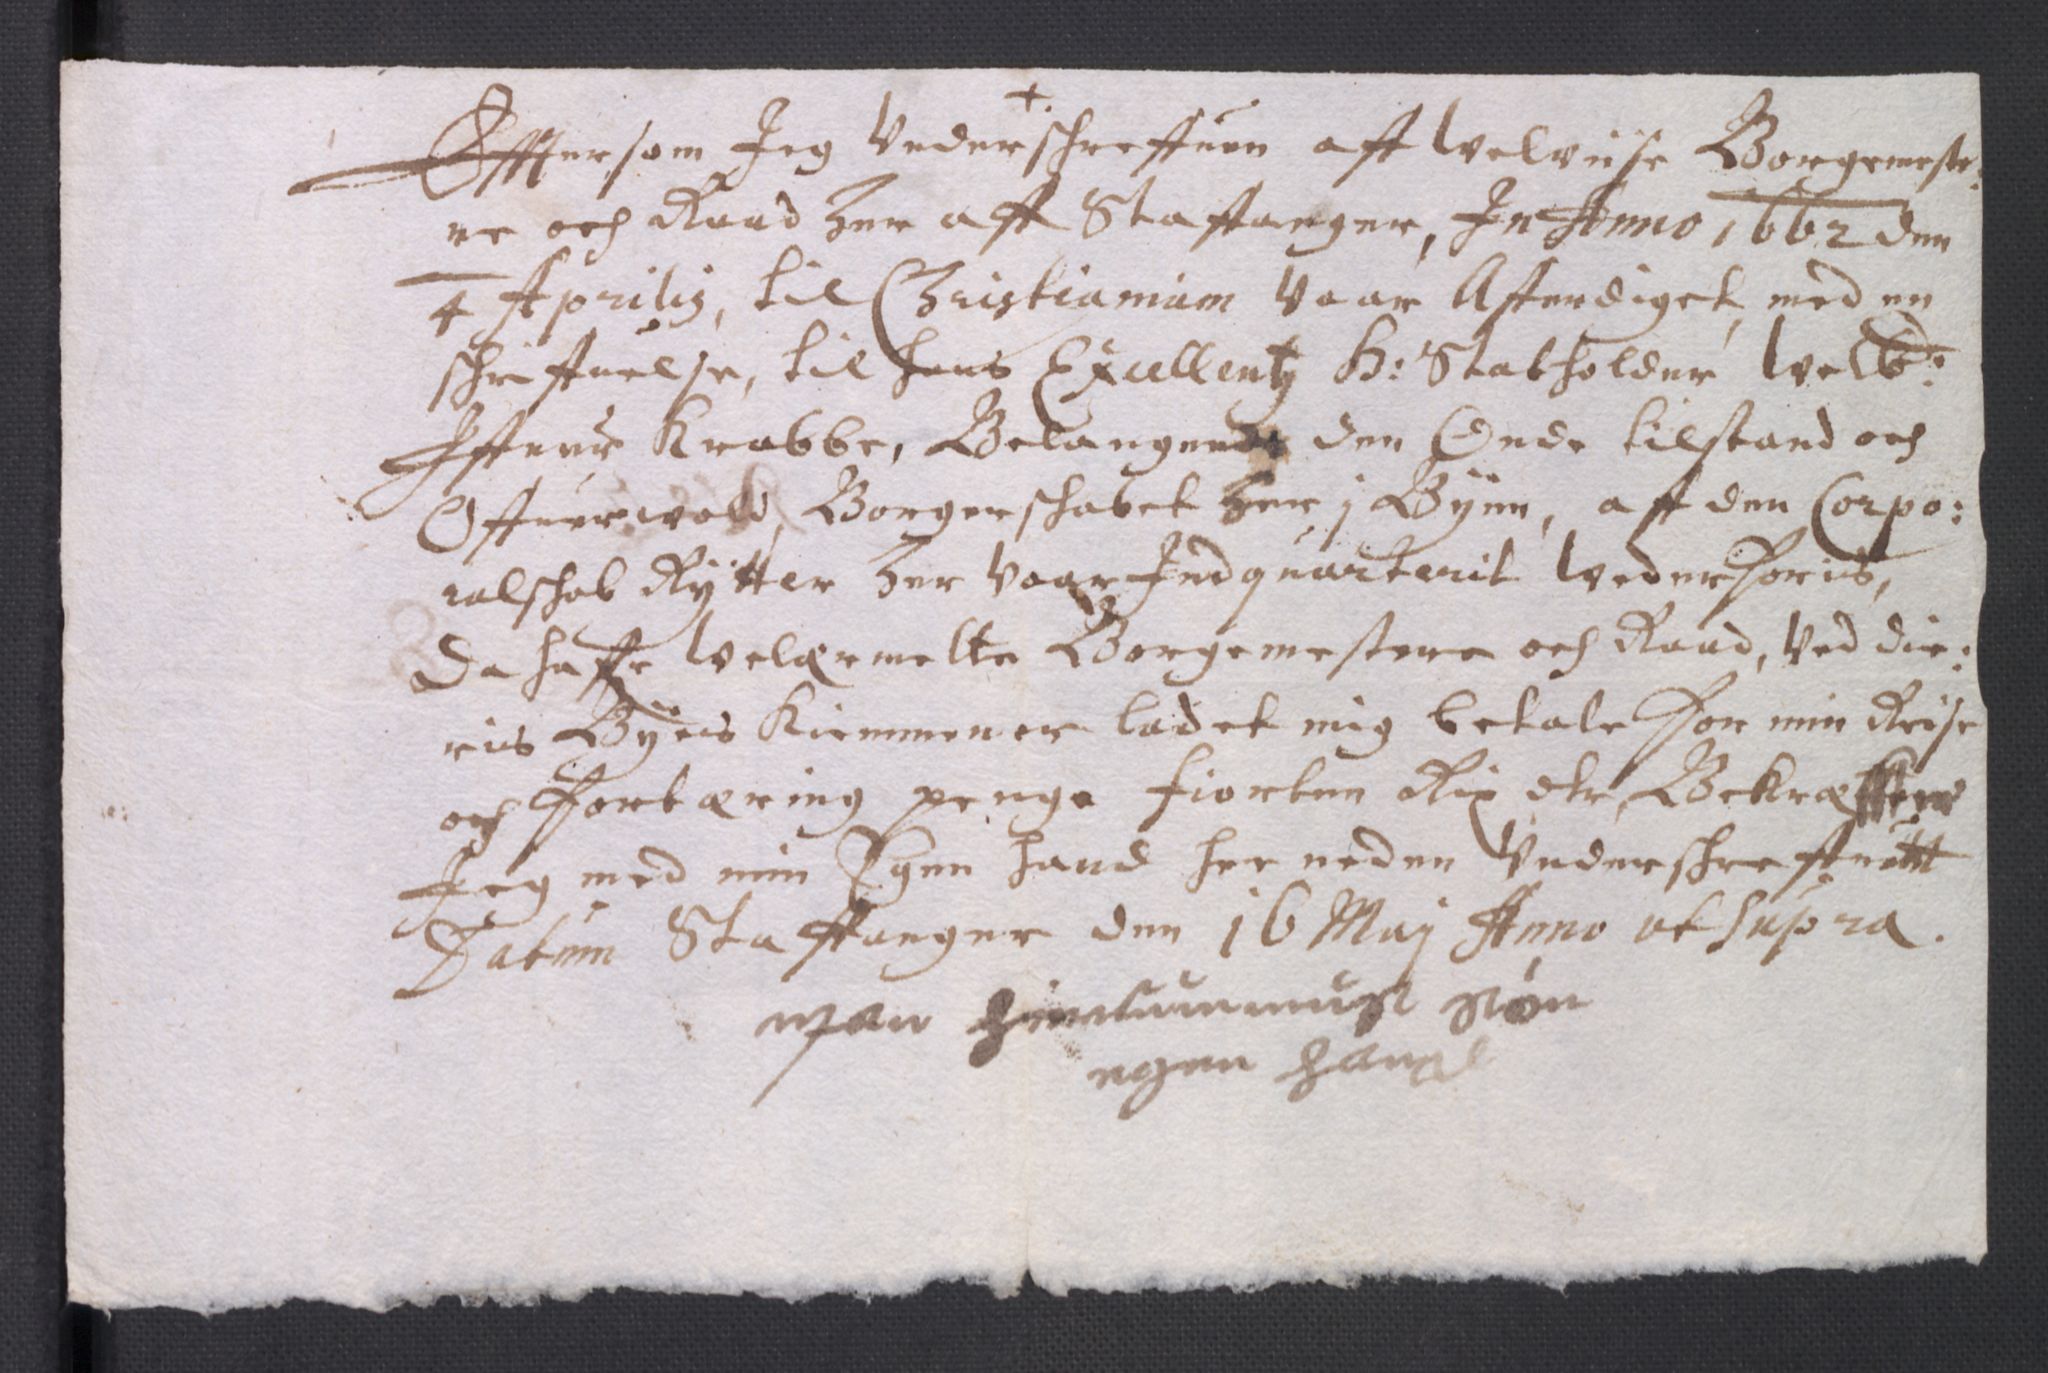 +.
Effttersom Jeg Underschreffuen aff Welviise Borgemeste:
re och Raad her aff Staffanger, In Anno 1662 den
4 Aprilis, til Christianiam vaar Afferdiget, med en
schriffuelse, til hans Excellentz H: Statholder Welb:
Iffuer Krabbe, Belangende den Onde tilstand och
Offuerwold, Borgerschabet her j Byen, aff den Corpo:
ralschab Rytter her vaar Indquarterit Wederforis,
Da haffr Welærmelte Borgemestere och Raad, Ved die:
ris Byes Kiemmener ladet mig betale for min Reise
och Fortæring penge fiorten Rix dlr, Bekræffter
Jeg med min Egen hand her neden Underschreffuett
Datum Staffanger den 16 Maj Anno ut supra.
egen hand